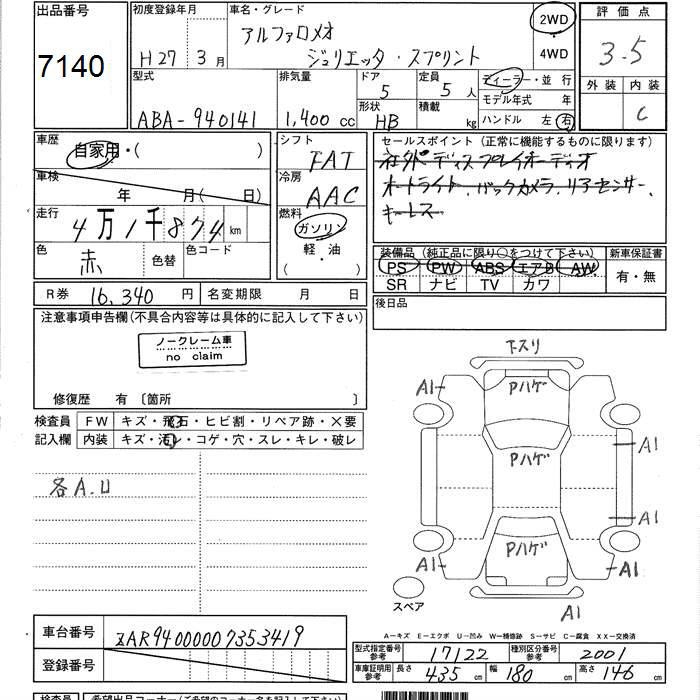 出品番号
7140
初度登録年月
H27 3月
車名・グレード
アルファロメオ
ジュリエッタ・スプリント
2WD
4WD
評価点
3.5
外装 内装
C
型式
ABA-940141
排気量
1,400 cc
ドア
5
定員
5人
形状
HB
積載
kg
ディーラー・並行
モデル年式 年
ハンドル 左 右
車歴
自家用・( )
車検
年 月( 日)
走行
4万1千874 km
色
赤
色替
色コード
シフト
FAT
冷房
AAC
燃料
ガソリン
軽・油
( ・ )
セールスポイント(正常に機能するものに限ります)
社外ディスプレイオーディオ
オートライト、バックカメラ、リアセンサー、
キーレス
装備品(純正品に限り○をつけて下さい)
PS PW ABS エアB AW
SR ナビ TV カワ
新車保証書
有・無
後日品
R券 16,340 円
名変期限 月 日
注意事項申告欄(不具合内容等は具体的に記入して下さい)
ノークレーム車
no claim
修復歴 有〔箇所 〕
検査員
記入欄
FW キズ・飛石・ヒビ割・リペア跡・×要
内装 キズ・汚レ・コゲ・穴・スレ・キレ・破レ
各A.U
下スリ
A1
Pハゲ
A1
Pハゲ
A1
Pハゲ
A1
A1
スペア
A1
A-キズ E-エクボ U-凹み W-補修跡 S-サビ C-腐食 XX-交換済
車台番号
ZAR94000007353419
登録番号
型式指定番号
参考
17122
種別区分番号
参考
2001
車庫証明用
参考
長さ 435 cm 幅 180 cm 高さ 146 cm